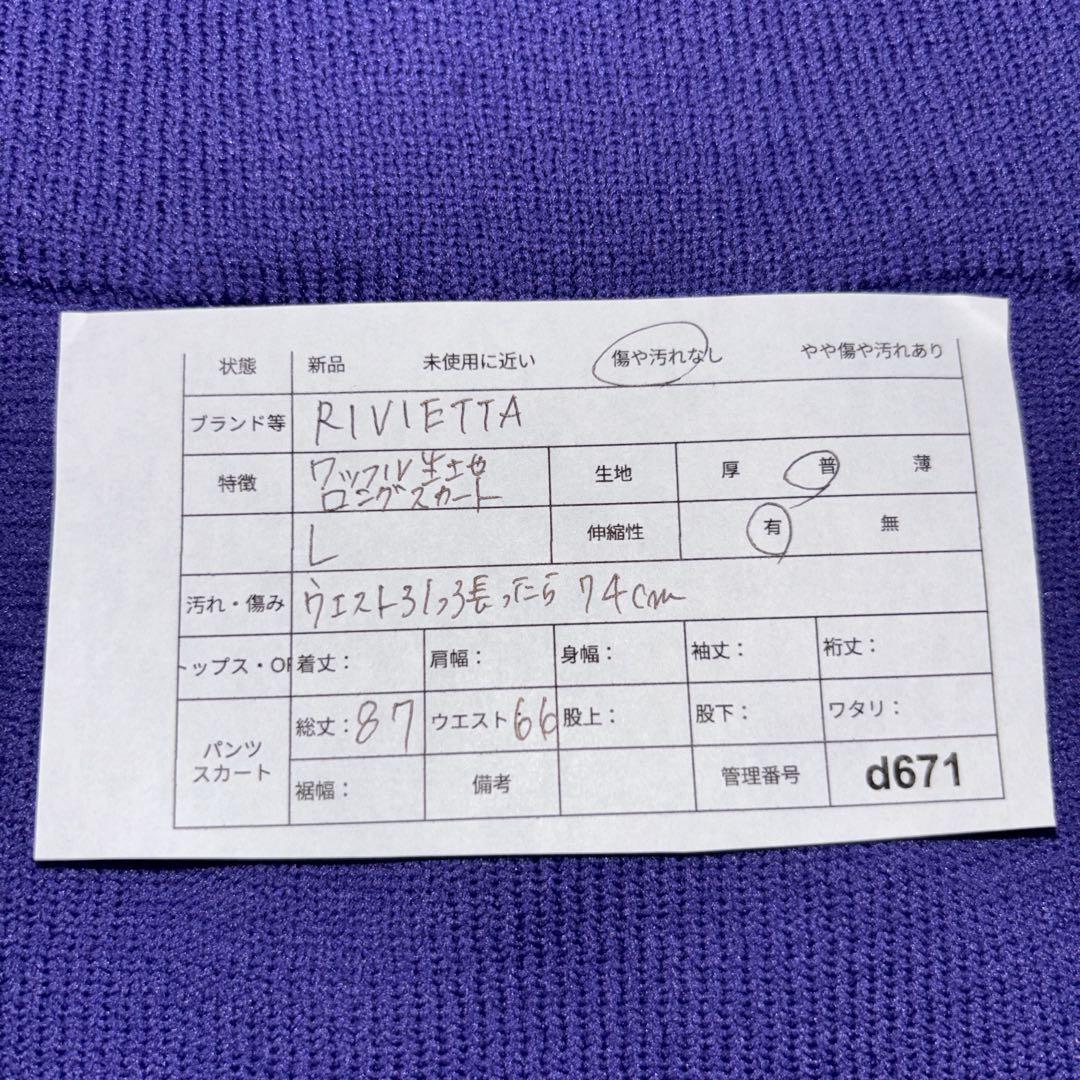 状態 新品 未使用に近い 傷や汚れなし やや傷や汚れあり
ブランド等 RIVIETTA
特徴 ワッフル生地 生地 厚 普 薄
ロングスカート
L 伸縮性 有 無
汚れ・傷み ウエスト 74cm
トップス・OP 着丈： 肩幅： 身幅： 袖丈： 裄丈：
パンツ スカート 総丈：87 ウエスト：66 股上： 股下： ワタリ：
裾幅： 備考 管理番号 d671